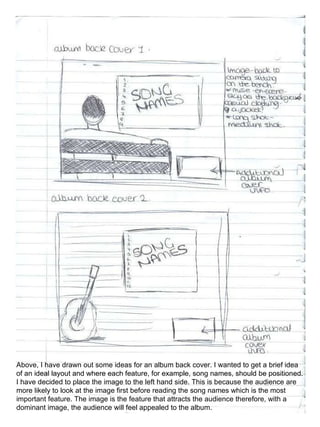 album back cover 1.
Image-back to
camera sitting
on the bench
* mise-en-scene
sky on the background
casual clothing
jacket?
* Long shot-
medium shot.
1
2
3
4
5
6
7
8
SONG
NAMES
additional
album
cover
info
album back cover 2.
SONG
NAMES
additional
album
cover
info.
Above, I have drawn out some ideas for an album back cover. I wanted to get a brief idea
of an ideal layout and where each feature, for example, song names, should be positioned.
I have decided to place the image to the left hand side. This is because the audience are
more likely to look at the image first before reading the song names which is the most
important feature. The image is the feature that attracts the audience therefore, with a
dominant image, the audience will feel appealed to the album.